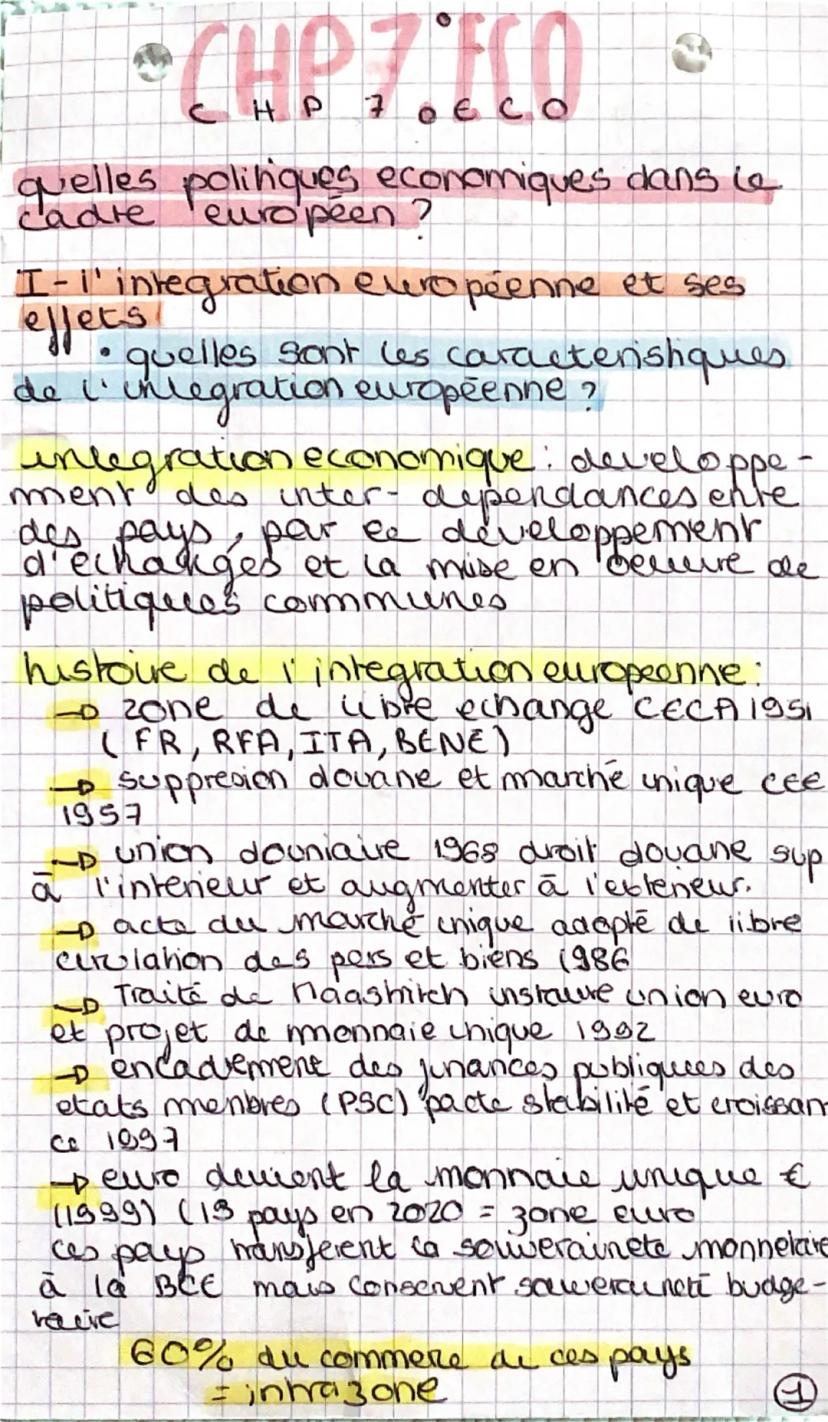 CHP 7 °ECO
CHP 7 o ECO
quelles politiques economiques dans le
cadre européen ?
I- l'integration européenne et ses
effets
• quelles sont les caracteristiques
de l'integration européenne ?
integration economique : developpe-
ment des inter-dependances entre
des pays, par le developpement
d'echanges et la mise en oeuvre de
politiques communes
histoire de l'integration europeenne :
→ zone de libre echange CECA 1951
( FR, RFA, ITA, BENE)
→ suppresion douane et marché unique CEE
1957
→ union douniaire 1968 droit douane sup
à l'interieur et augmenter à l'exterieur.
→ acte du marché unique adopté de libre
circulation des pers et biens 1986
→ Traité de Maastritch instaure union euro
et projet de monnaie unique 1992
→ encadrement des finances publiques des
etats menbres (PSC) pacte stabilité et croissan
ce 1997
→ euro devient la monnaie unique €
(1999) (19 pays en 2020 = zone euro
ces pays transferent la souveraineté monnetaire
à la BCE mais conservent souveraineté budge-
taire
60% du commerce de ces pays
= intrazone
1